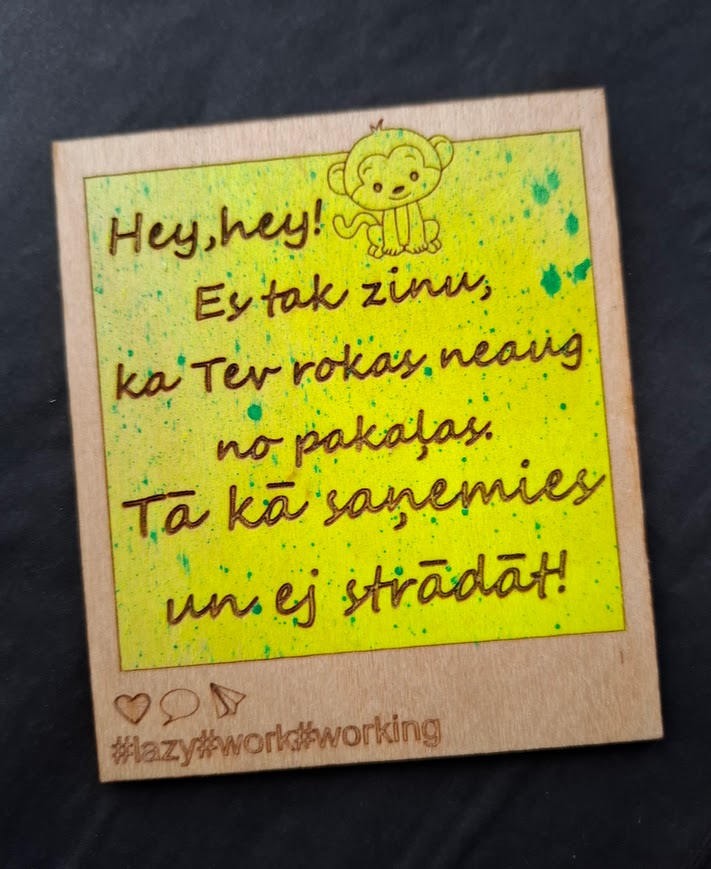 Hey,hey!
Es tak zinu,
ka Tev rokas neaug
no pakaļas.
Tā kā saņemies
un ej strādāt!
#lazy#work#working